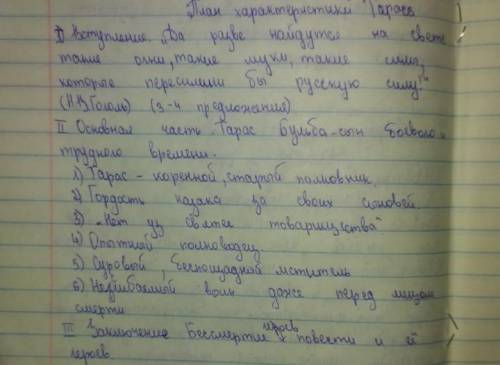 План характеристики Тараса
I) Вступление. „Да разве найдутся на свете
такие огни, такие муки, такие силы,
которые пересилили бы русскую силу!"
(Н.В. Гоголь) (3-4 предложения)
II Основная часть. Тарас Бульба - сын боевого и
трудного времени.
1) Тарас - коренной, старый полковник.
2) Гордость казака за своих сыновей.
3) „Нет уз святее товарищества"
4) Опытный полководец.
5) Суровый, беспощадный мститель
6) Несгибаемый воин даже перед лицом
смерти
III Заключение Бессмертие героев повести и её
героев